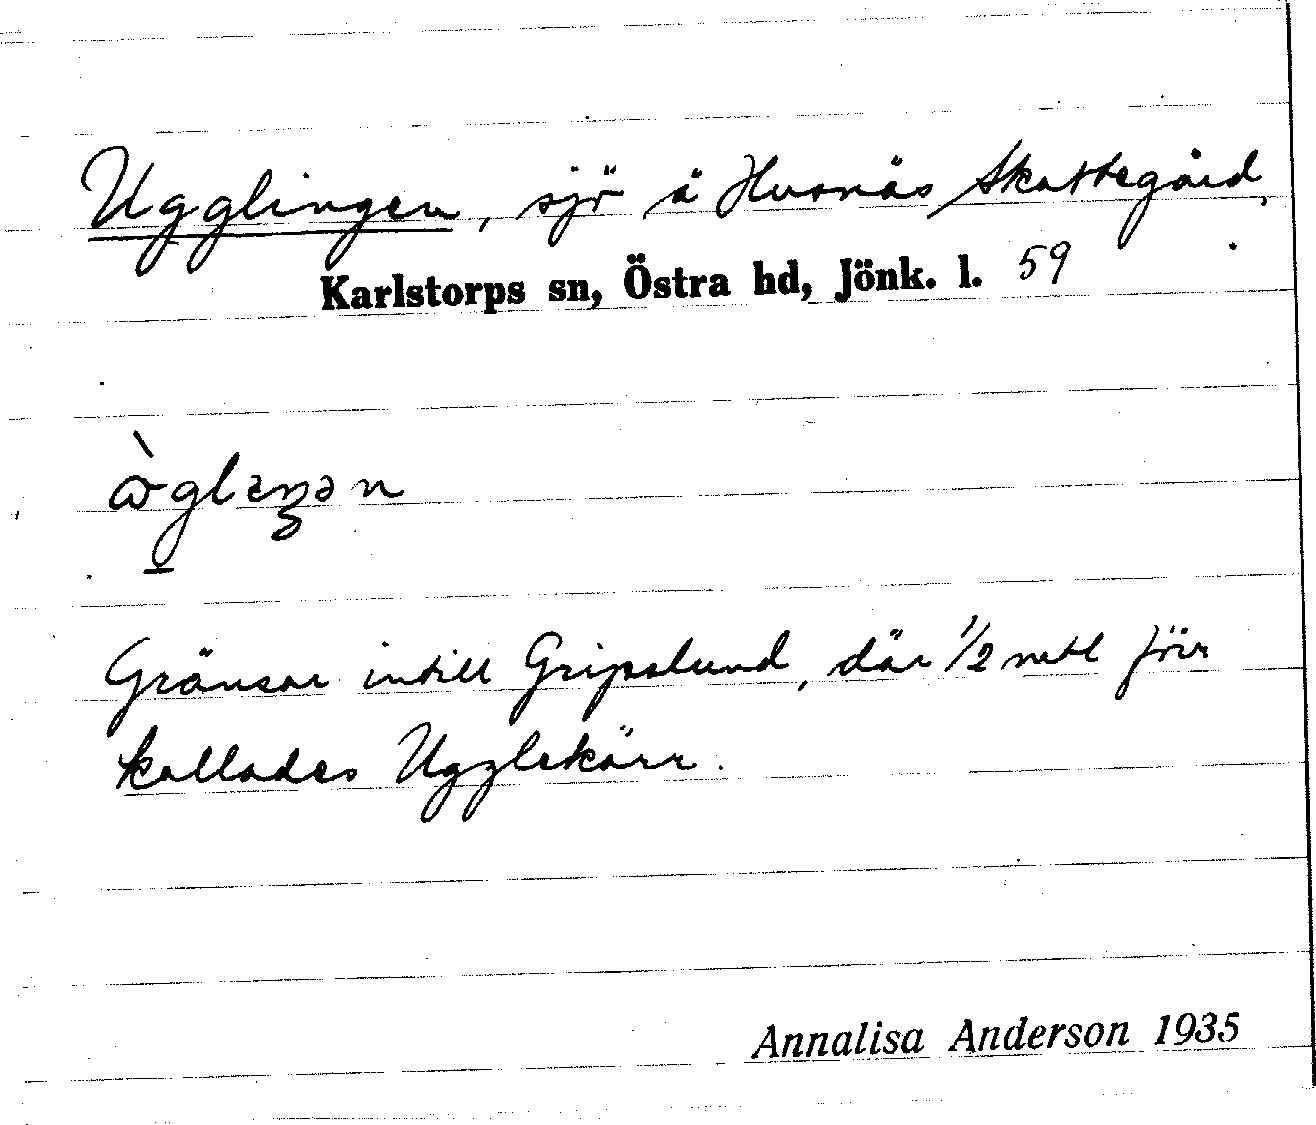 Ugglingen, sjö å Husnäs Skattegård,
Karlstorps sn, Östra hd, Jönk. l. 59
Gränsar intill Gripslund, där 1/2 mtl förr
kallades Ugglekärr.
Annalisa Anderson 1935